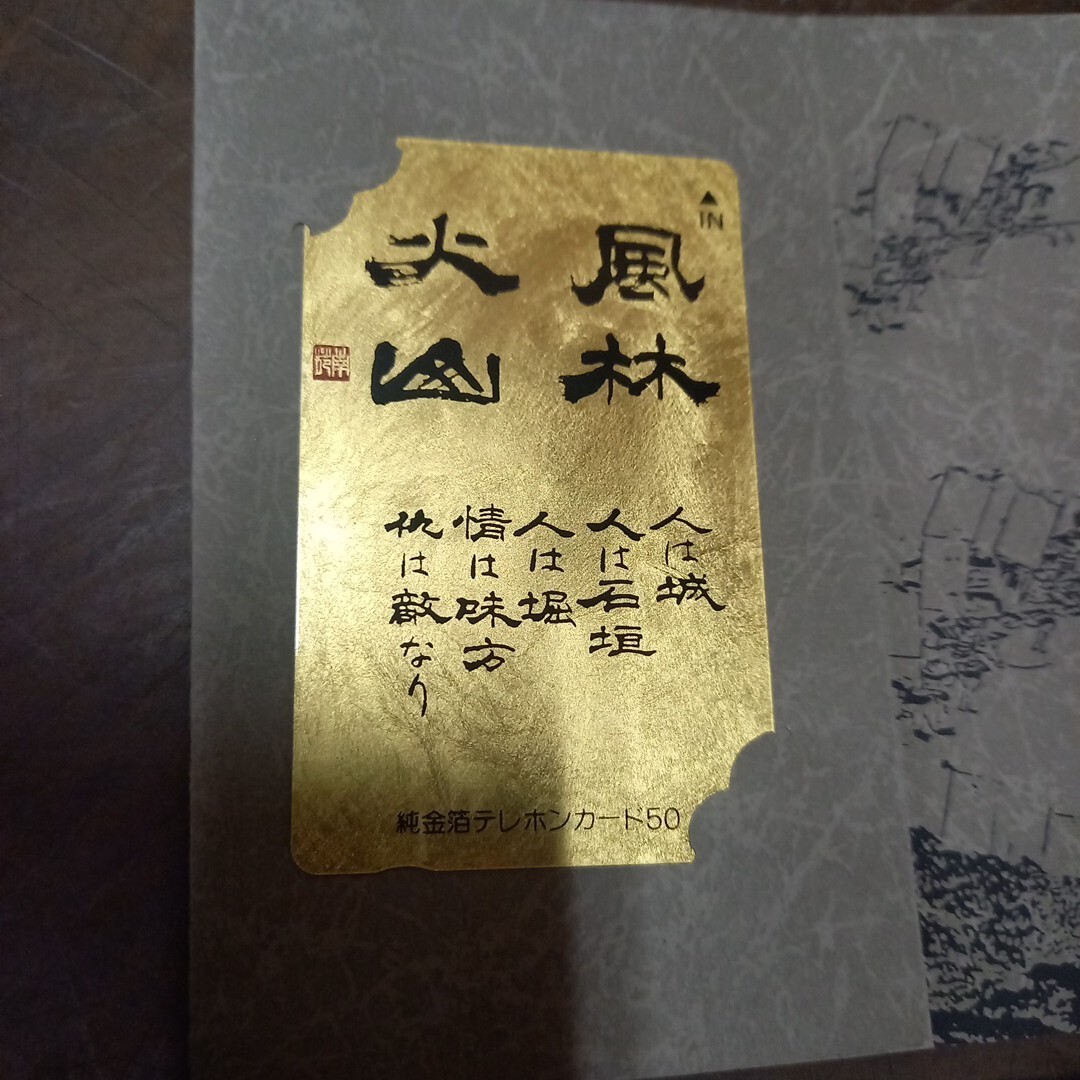 ▲
IN
風林
火山
人は城
人は石垣
人は堀
情は味方
仇は敵なり
純金箔テレホンカード50